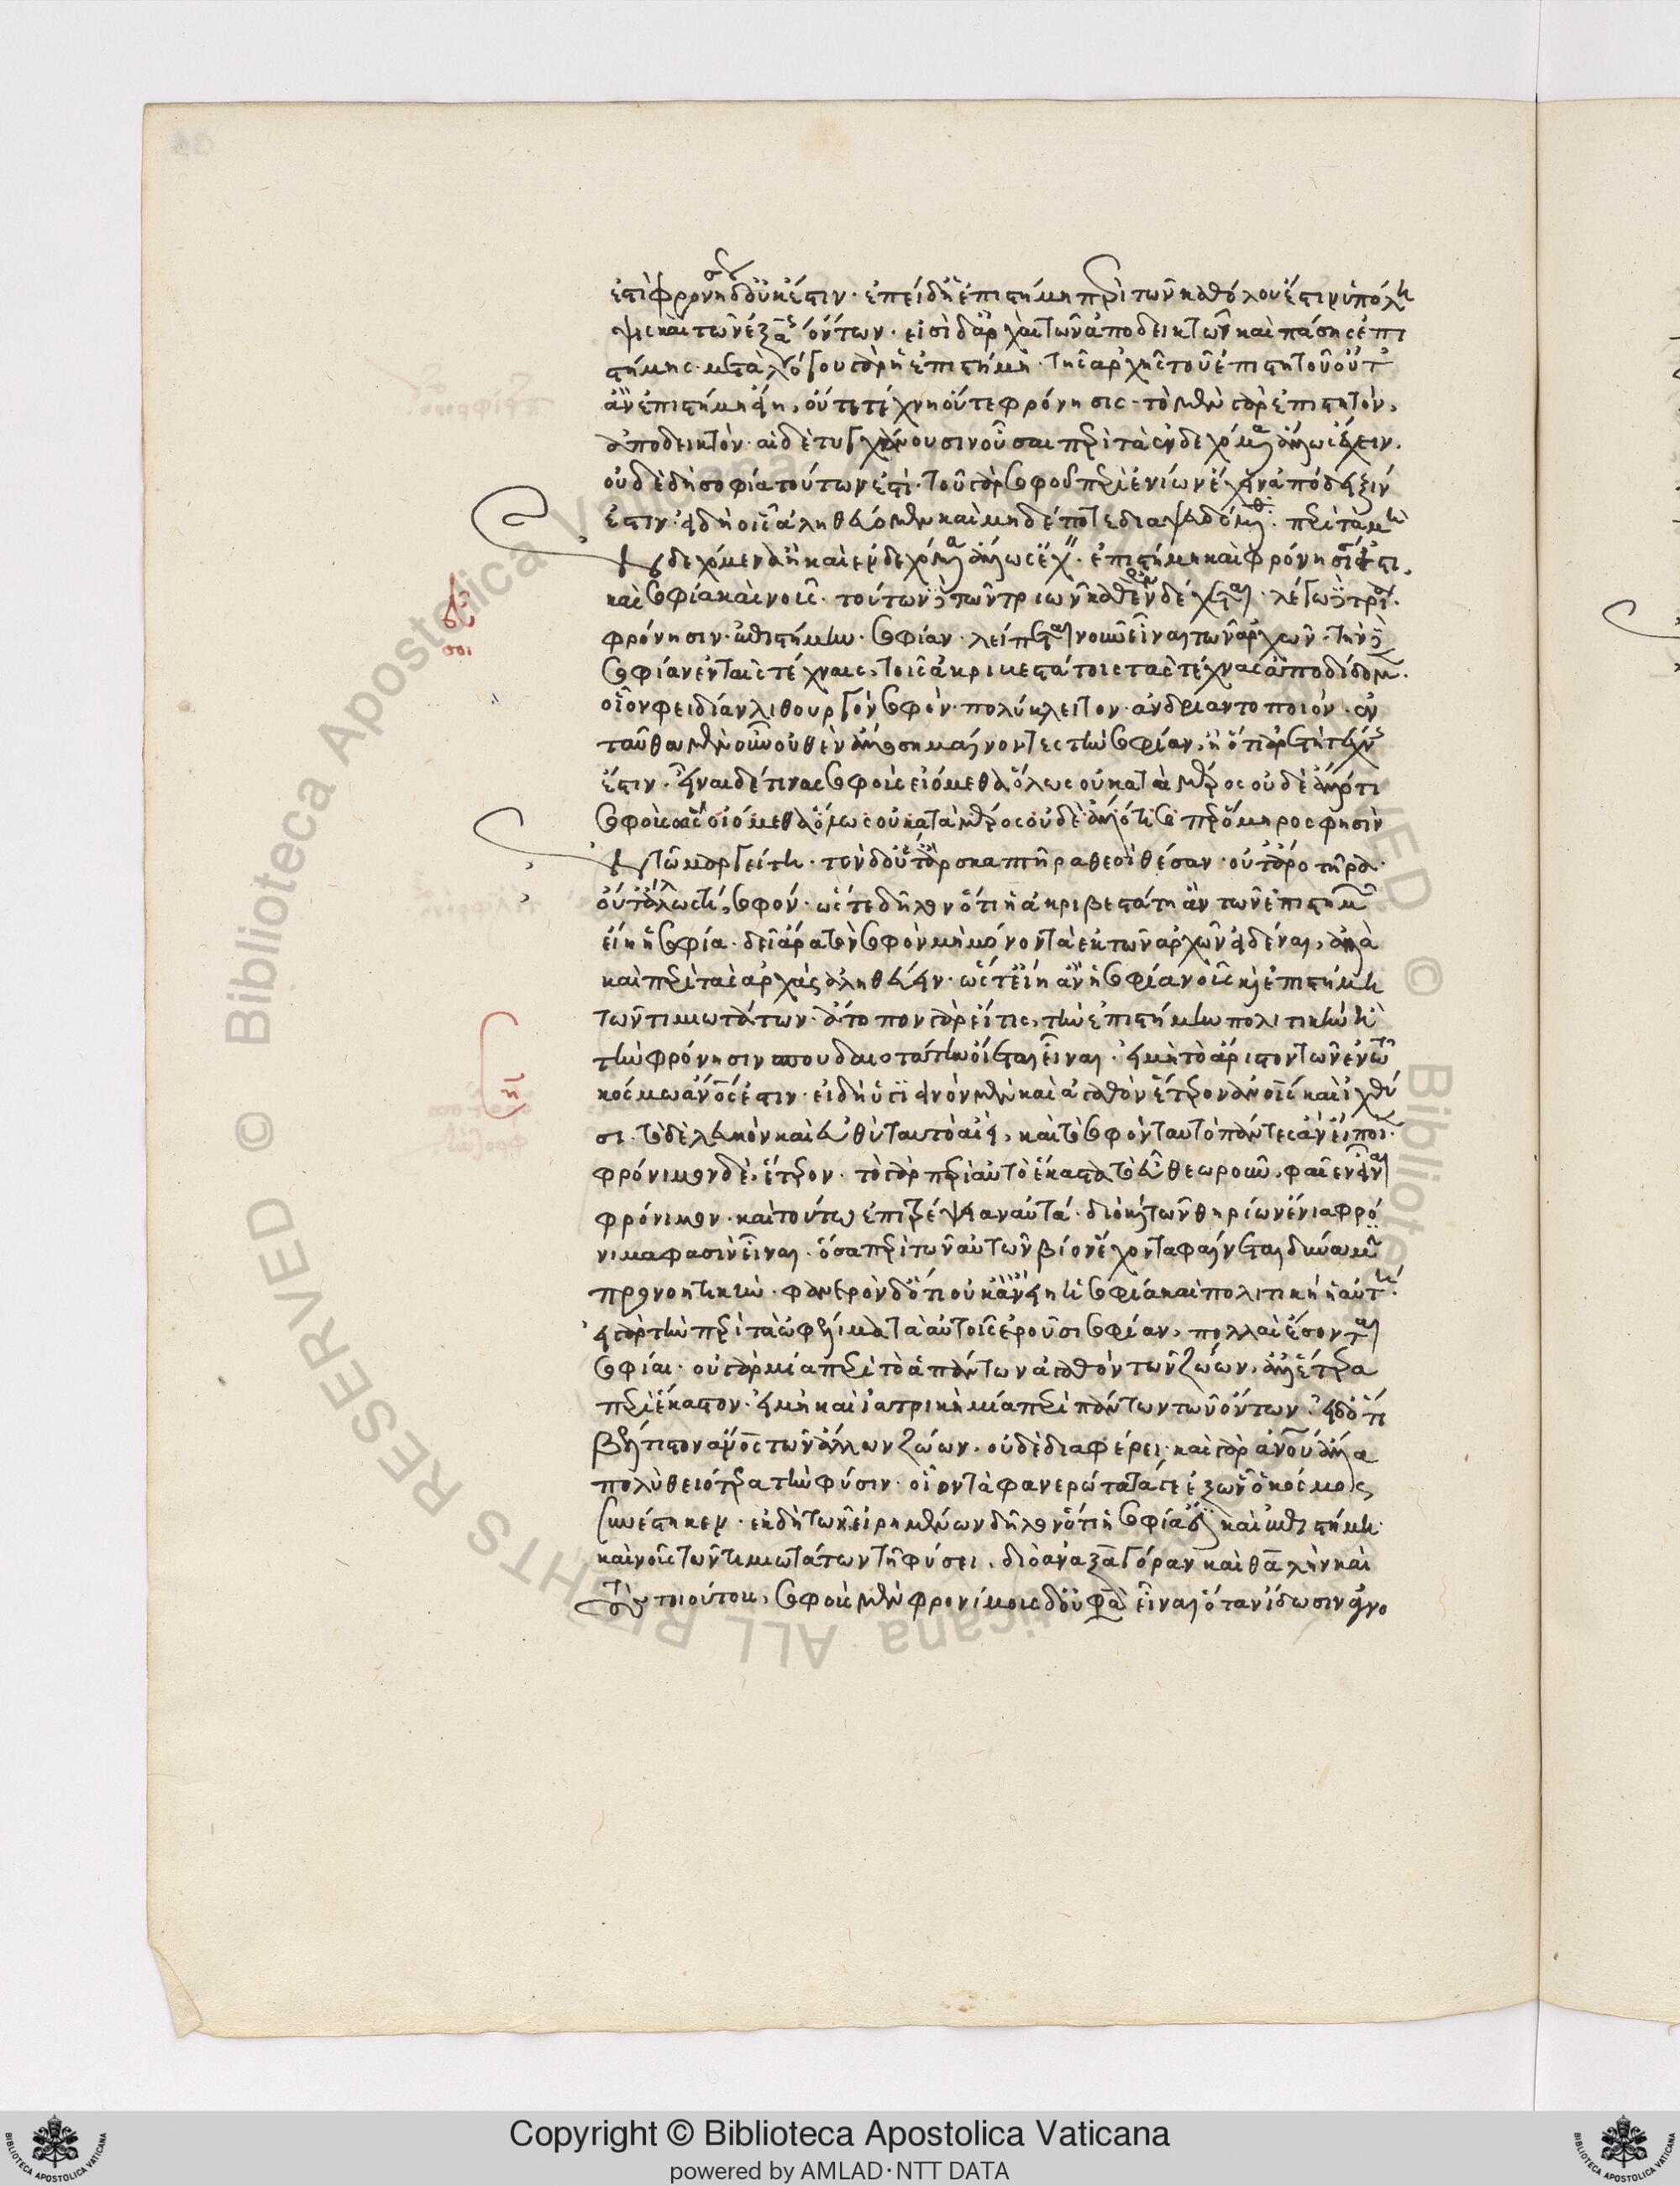 ἐστὶ φρονήσεως δ' οὐκ ἔστιν. ἐπειδὴ ἐπιστήμη περὶ τῶν καθόλου ἐστὶν ὑπόλη
ψις καὶ τῶν ἐξ ἀνάγκης ὄντων. εἰσὶ δ' ἀρχαὶ τῶν ἀποδεικτῶν καὶ πάσης ἐπι
στήμης. μετὰ λόγου γὰρ ἡ ἐπιστήμη. τῆς ἀρχῆς τοῦ ἐπιστητοῦ οὔτ'
ἂν ἐπιστήμη εἴη, οὔτε τέχνη οὔτε φρόνησις. τὸ μὲν γὰρ ἐπιστητὸν,
ἀποδεικτόν. αἱ δὲ τυγχάνουσιν οὖσαι περὶ τὰ ἐνδεχόμενα ἄλλως ἔχειν.
οὐδὲ δὴ σοφία τούτων ἐστὶ. τοῦ γὰρ σοφοῦ περὶ ἐνίων ἔχειν ἀπόδειξιν
ἐστιν. εἰ δὴ οἷς ἀληθεύομεν καὶ μηδέποτε διαψευδόμεθα. περὶ τὰ μὴ
ἐνδεχόμενα ἢ καὶ ἐνδεχόμενα ἄλλως ἔχειν. ἐπιστήμη καὶ φρόνησίς ἐστι,
καὶ σοφία καὶ νοῦς. τούτων δὲ τῶν τριῶν μηθὲν ἐνδέχεται. λέγω δὲ τρία.
φρόνησιν. ἐπιστήμην. σοφίαν. λείπεται νοῦν εἶναι τῶν ἀρχῶν. τὴν δὲ
σοφίαν ἐν ταῖς τέχναις, τοῖς ἀκριβεστάτοις τὰς τέχνας ἀποδίδομεν.
οἷον φειδίαν λιθουργὸν σοφὸν. πολύκλειτον. ἀνδριαντοποιόν. ἐν
ταῦθα μὲν οὖν οὐθὲν ἄλλο σημαίνοντες τὴν σοφίαν, ἢ ὅτι ἀρετὴ τέχνης
ἐστιν. εἶναι δέ τινας σοφοὺς οἰόμεθα ὅλως οὐ κατὰ μέρος οὐδὲ ἄλλό τι
σοφοὺς ὥσπερ ὅμηρος φησὶν
ἐν τῷ μαργείτῃ. τὸν δ' οὔτ' ἂρ σκαπτῆρα θεοὶ θέσαν. οὔτ' ἀροτῆρα.
οὔτ' ἄλλως τί, σοφόν. ὥστε δῆλον ὅτι ἡ ἀκριβεστάτη ἂν τῶν ἐπιστημῶν
εἴη ἡ σοφία. δεῖ ἄρα τὸν σοφὸν μὴ μόνον τὰ ἐκ τῶν ἀρχῶν εἰδέναι, ἀλλὰ
καὶ περὶ τὰς ἀρχὰς ἀληθεύειν. ὥστ' εἴη ἂν ἡ σοφία νοῦς καὶ ἐπιστήμη
τῶν τιμιωτάτων. ἄτοπον γὰρ εἴ τις, τὴν ἐπιστήμην πολιτικὴν ἢ
τὴν φρόνησιν σπουδαιοτάτην οἴεται εἶναι. εἰ μὴ τὸ ἄριστον τῶν ἐν τῷ
κόσμω ἄνθρωπός ἐστιν. εἰ δὴ ὑγιεινὸν μὲν καὶ ἀγαθὸν ἕτερον ἀνθρώποις καὶ ἰχθύ
σι. τὸ δὲ λευκὸν καὶ εὐθὺ ταυτὸ ἀεί, καὶ τὸ σοφὸν ταυτὸ πάντες ἂν εἴποιεν.
φρόνιμον δὲ, ἕτερον. τὸ γὰρ περὶ αὑτὸ ἕκαστα τὸ εὖ θεωροῦν, φαῖεν εἶναι
φρόνιμον. καὶ τούτω ἐπιτρέψειαν αὐτά. διὸ καὶ τῶν θηρίων ἔνια φρό
νιμα φασὶν εἶναι. ὅσα περὶ τὸν αὑτῶν βίον ἔχοντα φαίνεται δύναμιν
προνοητικὴν. φανερὸν δ' ὅτι οὐκ ἂν εἴη ἡ σοφία καὶ πολιτικὴ ἡ αὐτή.
εἰ γὰρ τὴν περὶ τὰ ὠφέλιμα τὰ αὑτοῖς ἐροῦσι σοφίαν, πολλαὶ ἔσονται
σοφίαι. οὐ γὰρ μία περὶ τὸ ἁπάντων ἀγαθὸν τῶν ζώων, ἀλλ' ἑτέρα
περὶ ἕκαστον. εἰ μὴ καὶ ἰατρικὴ μία περὶ πάντων τῶν ὄντων. εἰ δ' ὅτι
βέλτιστον ἄνθρωπος τῶν ἄλλων ζώων. οὐδὲ διαφέρει. καὶ γὰρ ἀνθρώπου ἄλλα
πολὺ θειότερα τὴν φύσιν. οἷον τὰ φανερώτατα γε ἐξ ὧν ὁ κόσμος
συνέστηκεν. ἐκ δὴ τῶν εἰρημένων δῆλον ὅτι ἡ σοφία ἐστὶ καὶ ἐπιστήμη
καὶ νοῦς τῶν τιμιωτάτων τῇ φύσει. διὸ ἀναξαγόραν καὶ θαλῆν καὶ
τοὺς τοιούτους, σοφοὺς μὲν φρονίμους δ' οὔ φασιν εἶναι ὅταν ἴδωσιν ἀγνο